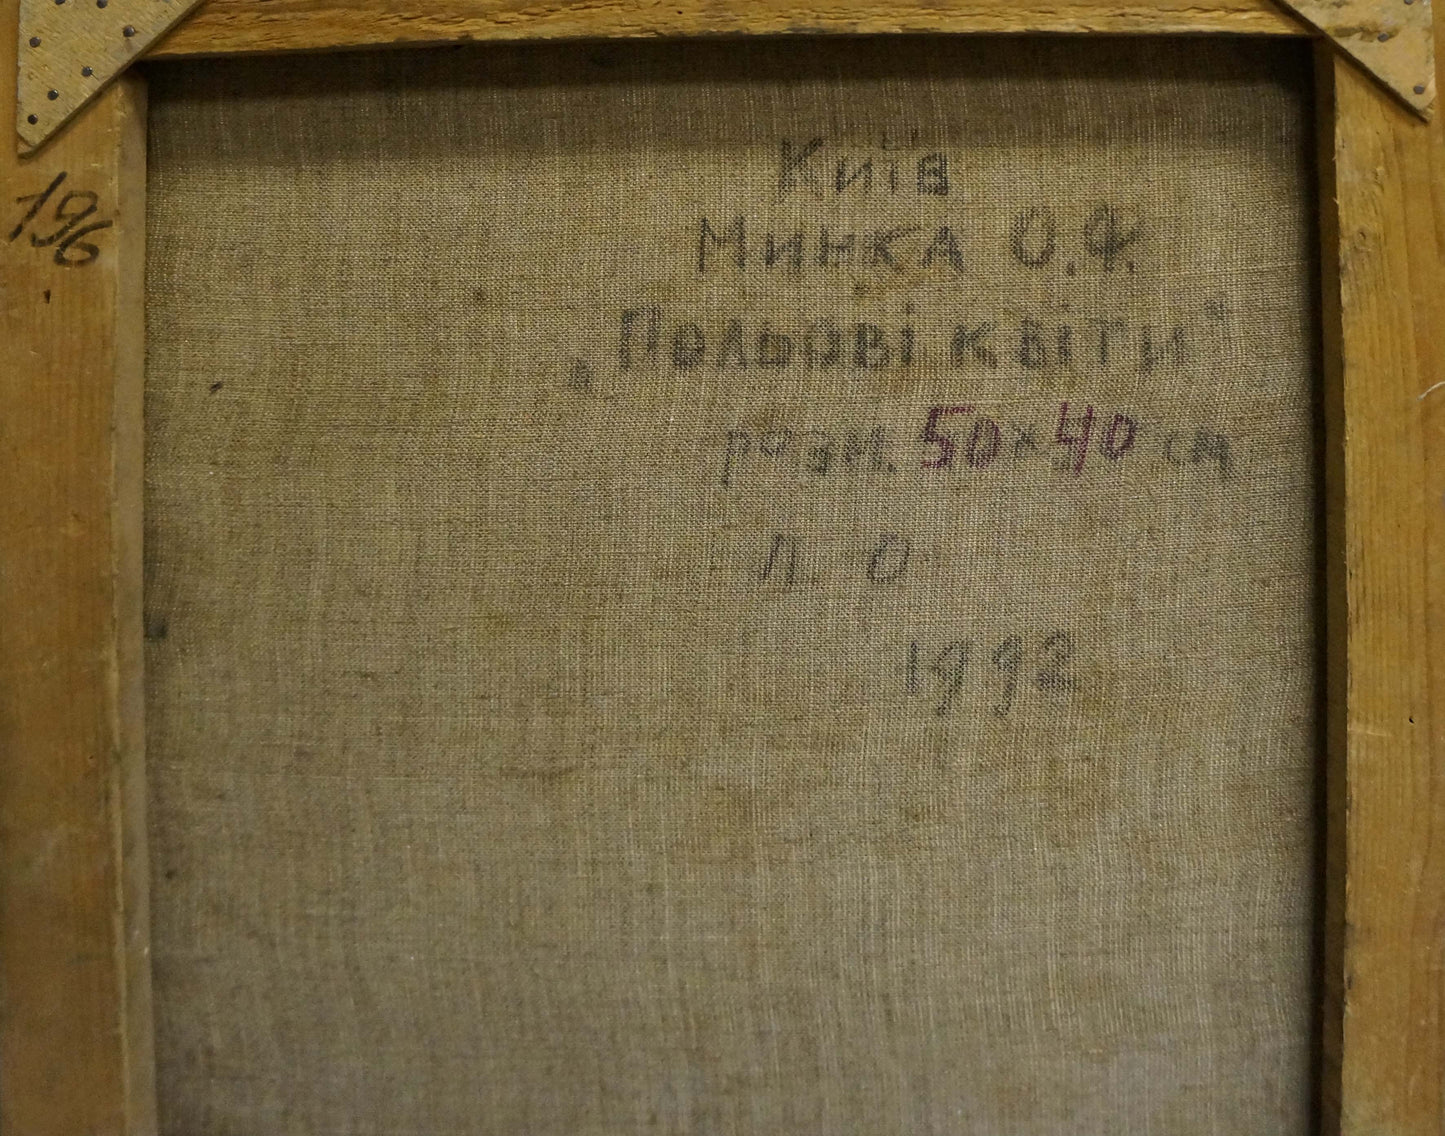 196
Київ
Минка О.Ф.
„Польові квіти"
розм. 50×40 см
п о
1992